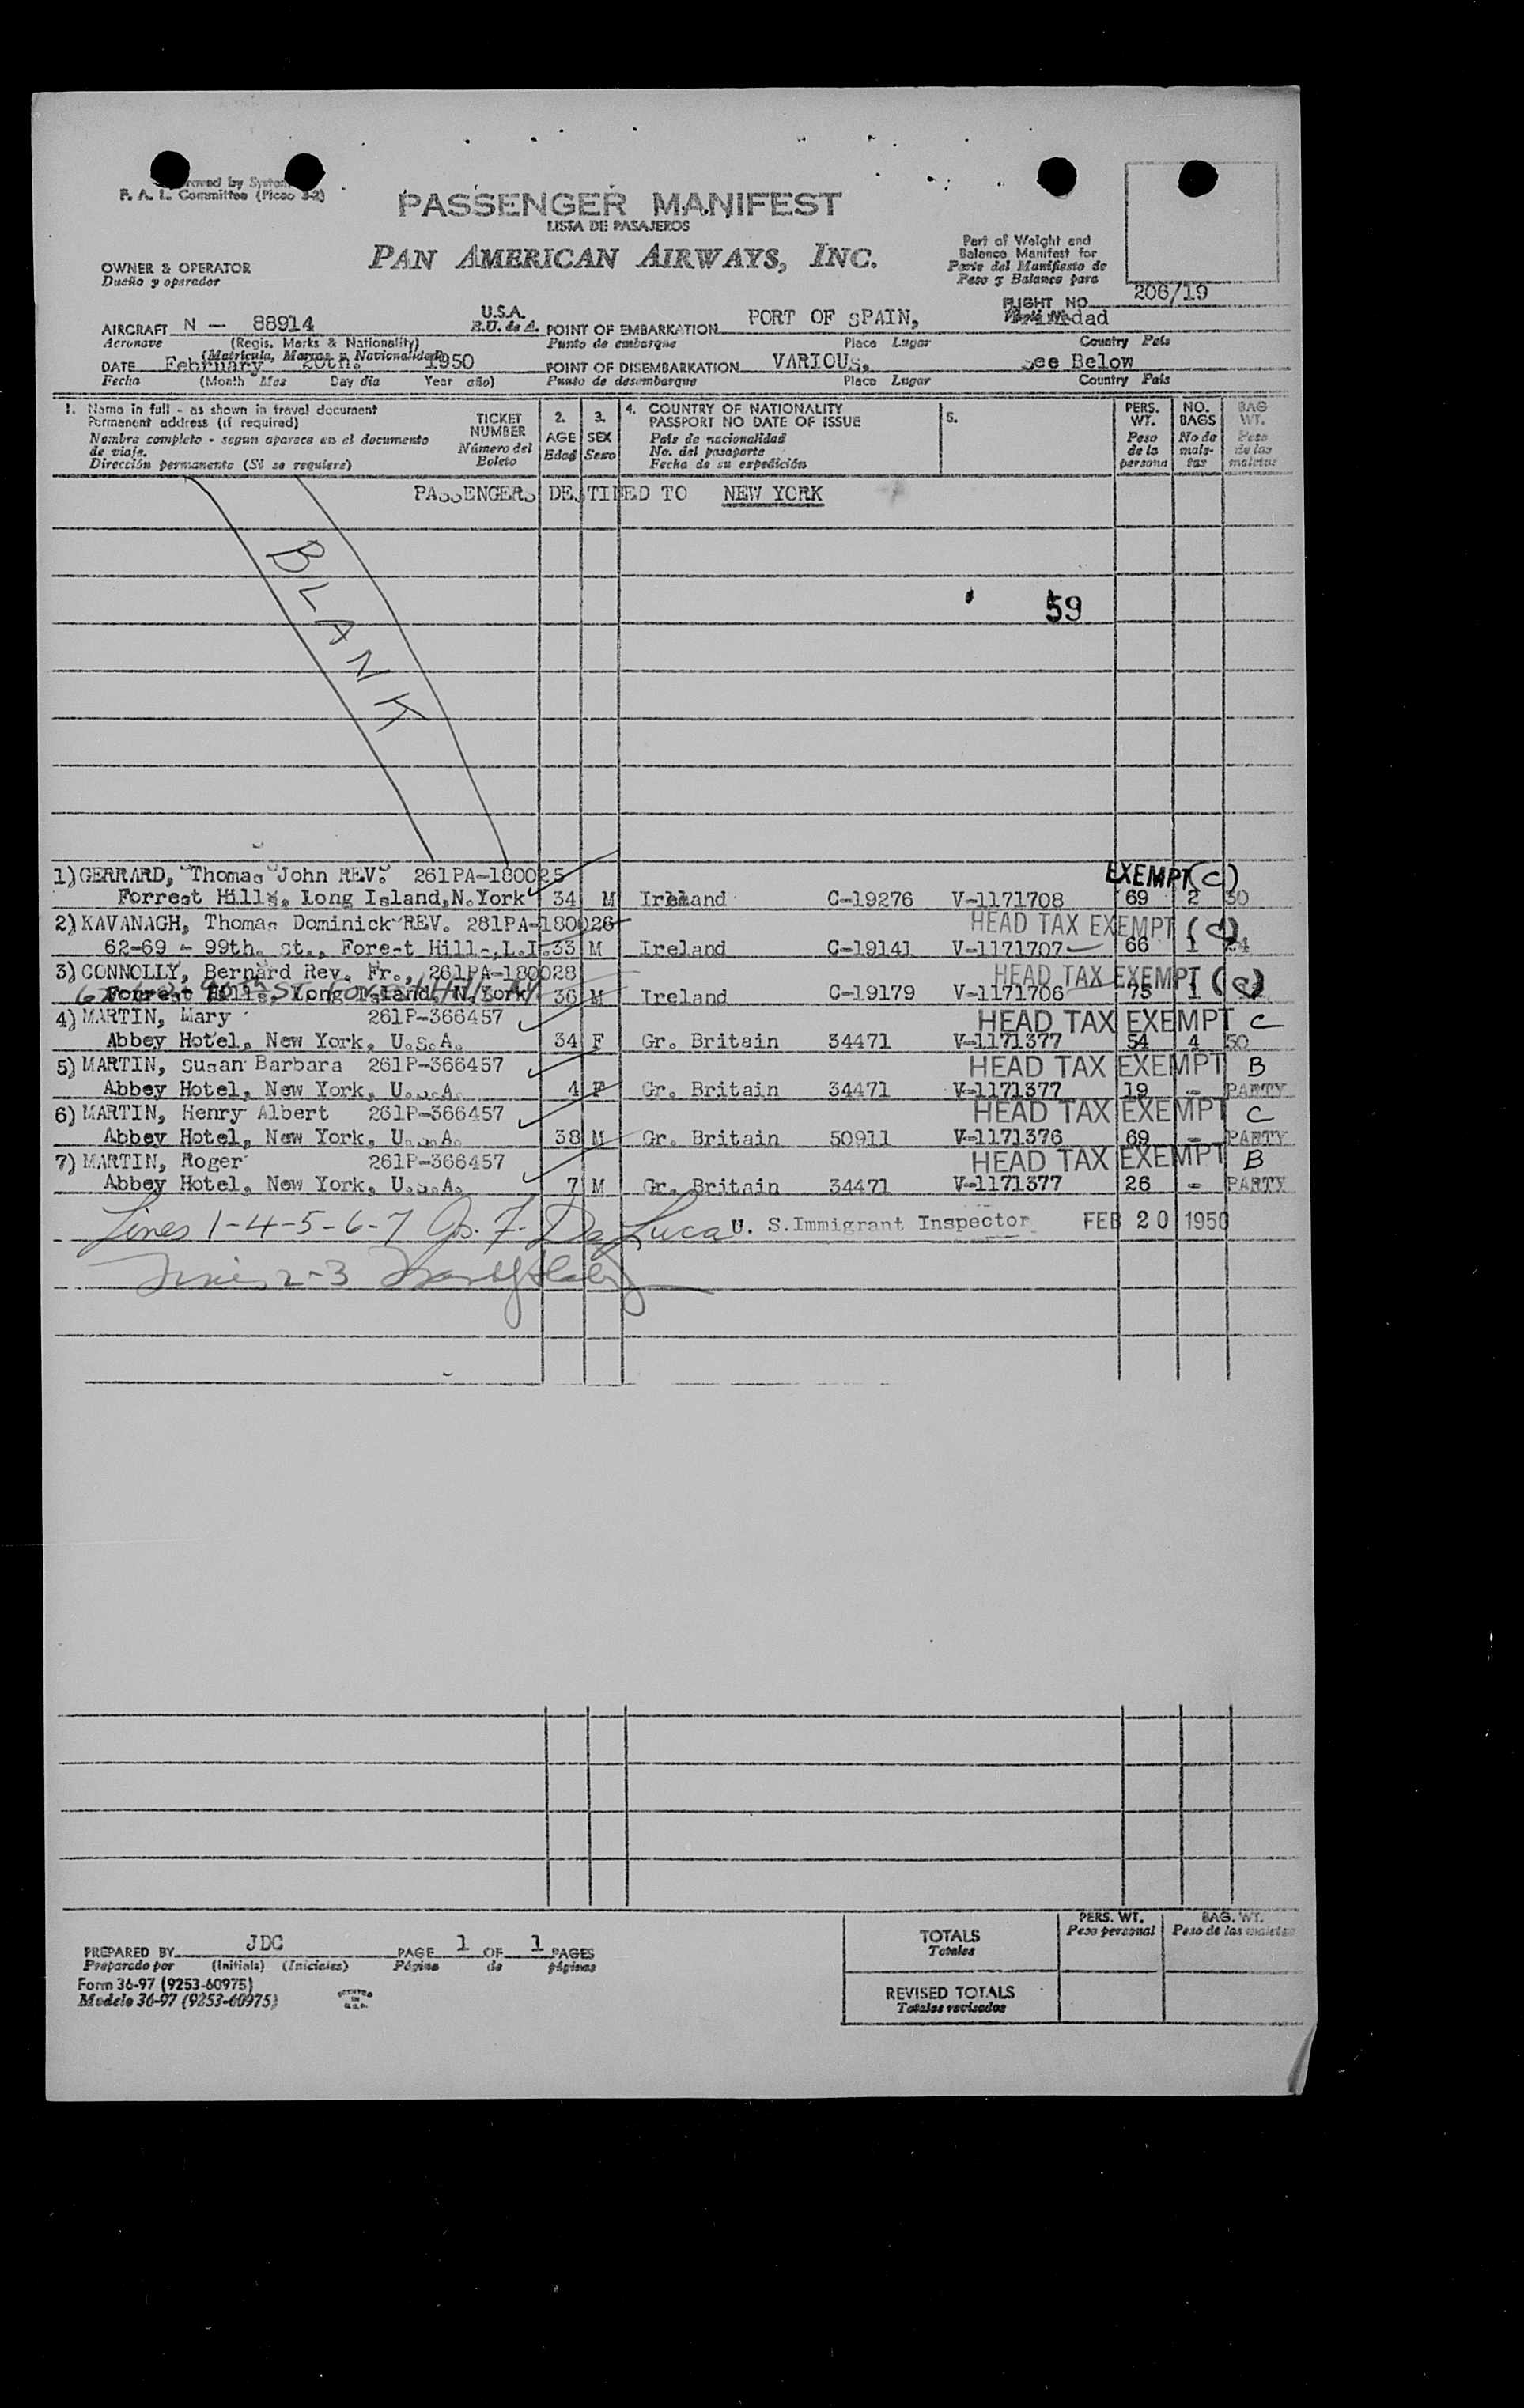 Approved by System
F. A. L. Committee (Picao 3-2)
PASSENGER MANIFEST
LISTA DE PASAJEROS
PAN AMERICAN AIRWAYS, INC.
OWNER & OPERATOR
Dueño y operador
Part of Weight and
Balance Manifest for
Parte del Manifiesto de
Peso y Balance para
FLIGHT NO. 206/19
AIRCRAFT N - 88914 U.S.A. POINT OF EMBARKATION PORT OF SPAIN, Trinidad
Aeronave (Regis. Marks & Nationality) E.U. de A. Punto de embarque Place Lugar Country País
(Matrícula, Marcas y Nacionalidad)
DATE February 20th. 1950 POINT OF DISEMBARKATION VARIOUS, See Below
Fecha (Month Mes Day día Year año) Punto de desembarque Place Lugar Country País
1. Name in full - as shown in travel document
Permanent address (if required)
Nombre completo - segun aparece en el documento
de viaje.
Dirección permanente (Si se requiere)
TICKET
NUMBER
Número del
Boleto
2.
AGE
Edad
3.
SEX
Sexo
4. COUNTRY OF NATIONALITY
PASSPORT NO DATE OF ISSUE
País de nacionalidad
No. del pasaporte
Fecha de su expedición
5.
PERS.
WT.
Peso
de la
persona
NO.
BAGS
No de
male-
tas
BAG
WT.
Peso
de las
maletas
PASSENGERS DESTINED TO NEW YORK
BLANK
59
1) GERRARD, Thomas John REV. 261PA-180025 EXEMPT (C)
Forrest Hills, Long Island, N.York 34 M Ireland C-19276 V-1171708 69 2 30
2) KAVANAGH, Thomas Dominick REV. 261PA-180026 HEAD TAX EXEMPT (C)
62-69 - 99th. St., Forest Hills, L.I. 33 M Ireland C-19141 V-1171707 66 1 24
3) CONNOLLY, Bernard Rev. Fr., 261PA-180028 HEAD TAX EXEMPT (C)
Forrest Hills, Long Island, N.York 36 M Ireland C-19179 V-1171706 75 1
4) MARTIN, Mary 261P-366457 HEAD TAX EXEMPT C
Abbey Hotel, New York, U.S.A. 34 F Gr. Britain 34471 V-1171377 54 4 50
5) MARTIN, Susan Barbara 261P-366457 HEAD TAX EXEMPT B
Abbey Hotel, New York, U.S.A. 4 F Gr. Britain 34471 V-1171377 19 - PARTY
6) MARTIN, Henry Albert 261P-366457 HEAD TAX EXEMPT C
Abbey Hotel, New York, U.S.A. 38 M Gr. Britain 50911 V-1171376 69 - PARTY
7) MARTIN, Roger 261P-366457 HEAD TAX EXEMPT B
Abbey Hotel, New York, U.S.A. 7 M Gr. Britain 34471 V-1171377 26 - PARTY
Lines 1-4-5-6-7 Jos. F. De Luca U. S. Immigrant Inspector FEB 20 1950
Lines 2-3
PREPARED BY JDC PAGE 1 OF 1 PAGES
Preparado por (Initials) (Iniciales) Página de páginas
Form 36-97 (9253-60975)
Modelo 36-97 (9253-60975)
PRINTED
IN
U.S.A.
PERS. WT.
Peso personal
BAG. WT.
Peso de las maletas
TOTALS
Totales
REVISED TOTALS
Totales revisados